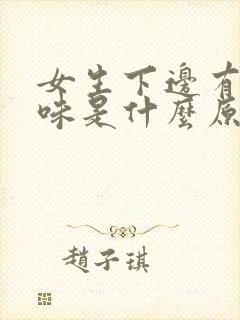 女生下邊有
味是什麼原
趙子琪